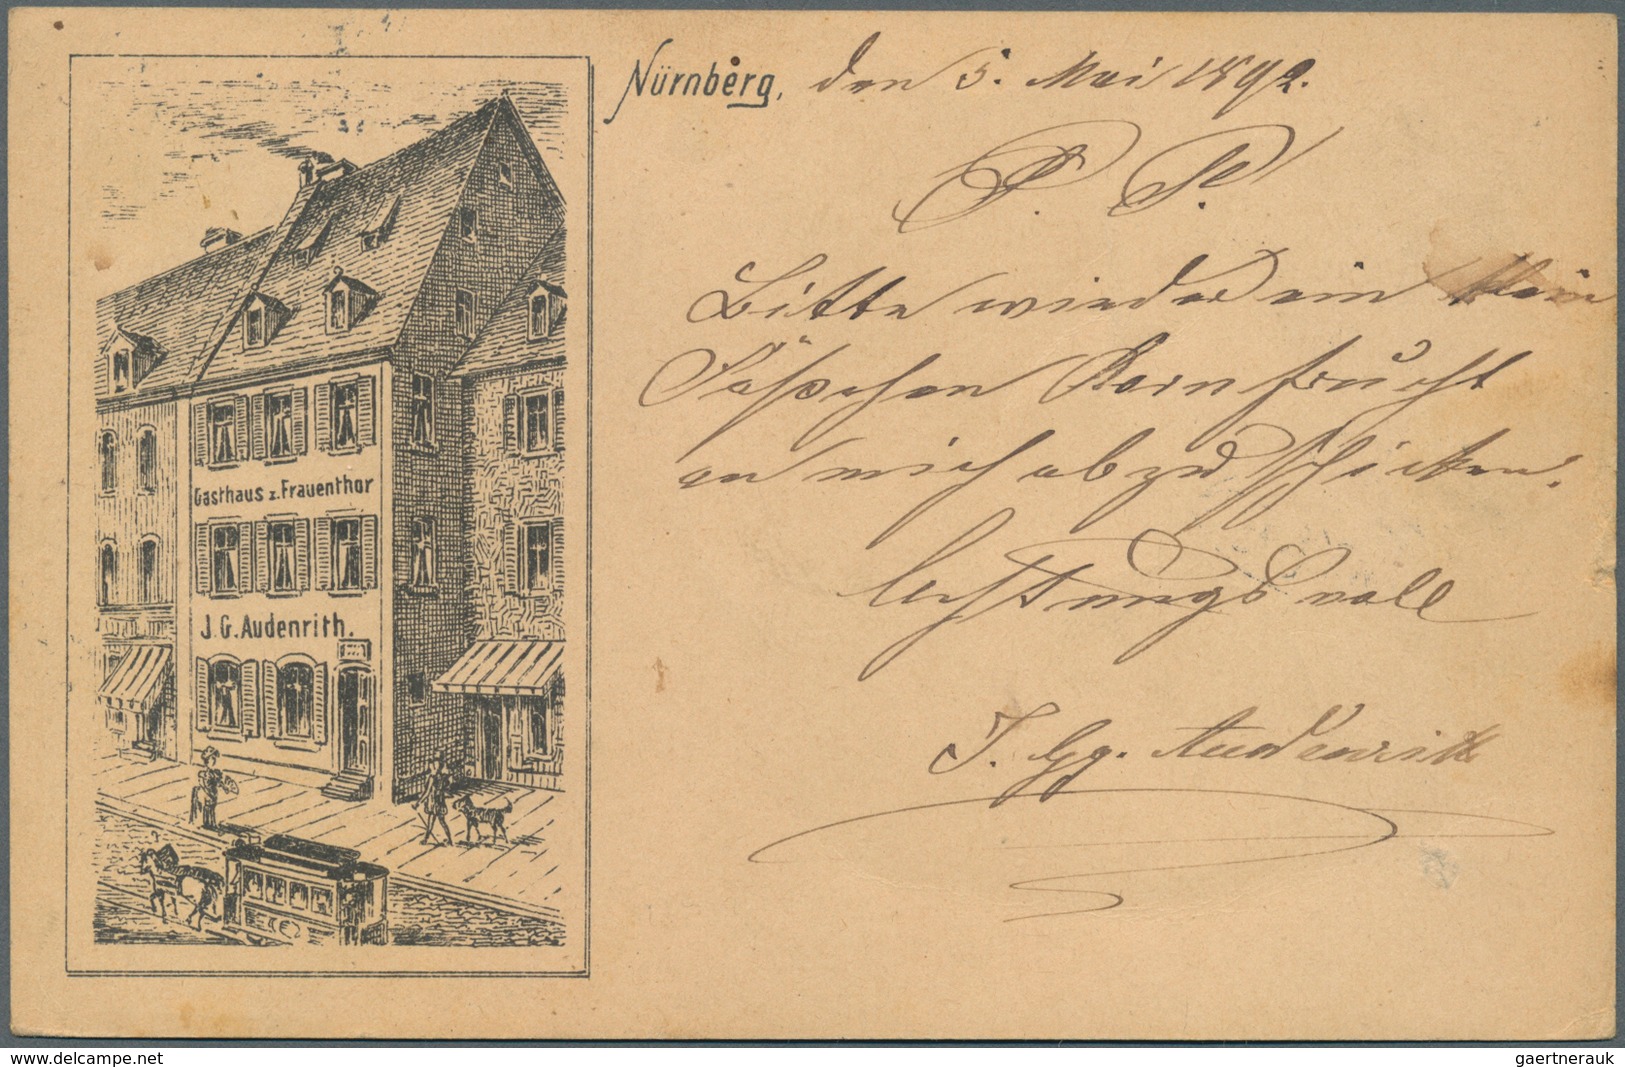 Nürnberg, den 5. Mai 1892.
P. P.
Bitte wieder ein klein
Fässchen Kornfrucht
an mich abzuschicken.
Achtungsvoll
J. Gg. Audenrith
Gasthaus z. Frauenthor
J. G. Audenrith.
www.delcampe.net
gaertnerauk